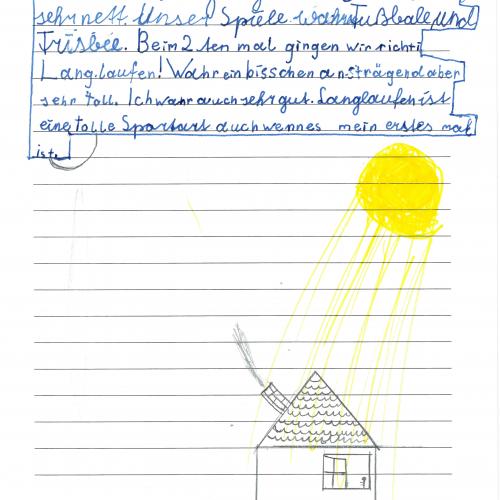 sehr nett. Unser Spiele wahr Fußbale und
Frisbee. Beim 2 ten mal gingen wir richti
Lang.laufen! Wahr ein bisschen an-strägend aber
sehr toll. Ich wahr auch sehr gut. Langlaufen ist
eine tolle Sportart auch wen es mein erstes mal
ist.